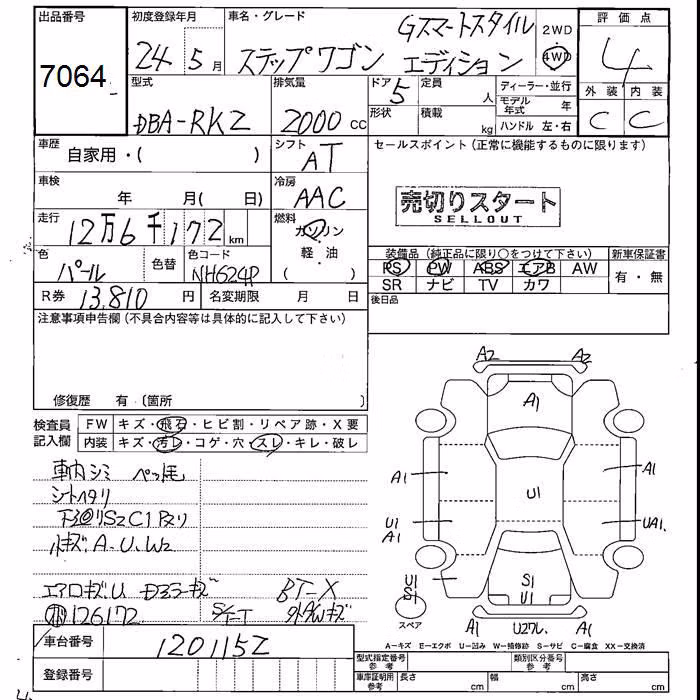 出品番号 初度登録年月 車名・グレード Gスマートスタイル 2WD 評価点
7064 24 5月 ステップワゴン エディション 4WD 4
型式 排気量 ドア 5 定員 人 ディーラー・並行 外装 内装
DBA-RK2 2000cc 形状 積載 kg モデル年式 年 C C
ハンドル 左・右
車歴 自家用・( ) シフト AT セールスポイント (正常に機能するものに限ります)
車検 年 月( 日) 冷房 AAC 売切りスタート
SELLOUT
走行 12万6千172km 燃料 ガソリン
軽・油
( )
色 パール 色替 色コード NH624P 装備品 (純正品に限り○をつけて下さい) 新車保証書
PS PW ABS エアB AW 有・無
R券 13,810円 名変期限 月 日 SR ナビ TV カワ
後日品
注意事項申告欄 (不具合内容等は具体的に記入して下さい)
修復歴 有 (箇所 )
検査員 FW キズ・飛石・ヒビ割・リペア跡・X要
記入欄 内装 キズ・汚レ・コゲ・穴・スレ・キレ・破レ
車内シミ ペット毛
シートヘタリ
下廻りS2C1
小キズ.A.U.W2
エアロキズ.U ドアミラーキズ BT-X
126172 S/T-T 外AWキズ
車台番号 1201152
登録番号
A2 A2
A1
A1 A1
U1
U1 UA1
A1
S1
U1
U1
スペア A1 U2ワレ. A1
A-キズ E-エクボ U-凹み W-補修跡 S-サビ C-腐食 XX-交換済
型式指定番号 参考 類別区分番号 参考
車庫証明用 参考 長さ cm 幅 cm 高さ cm